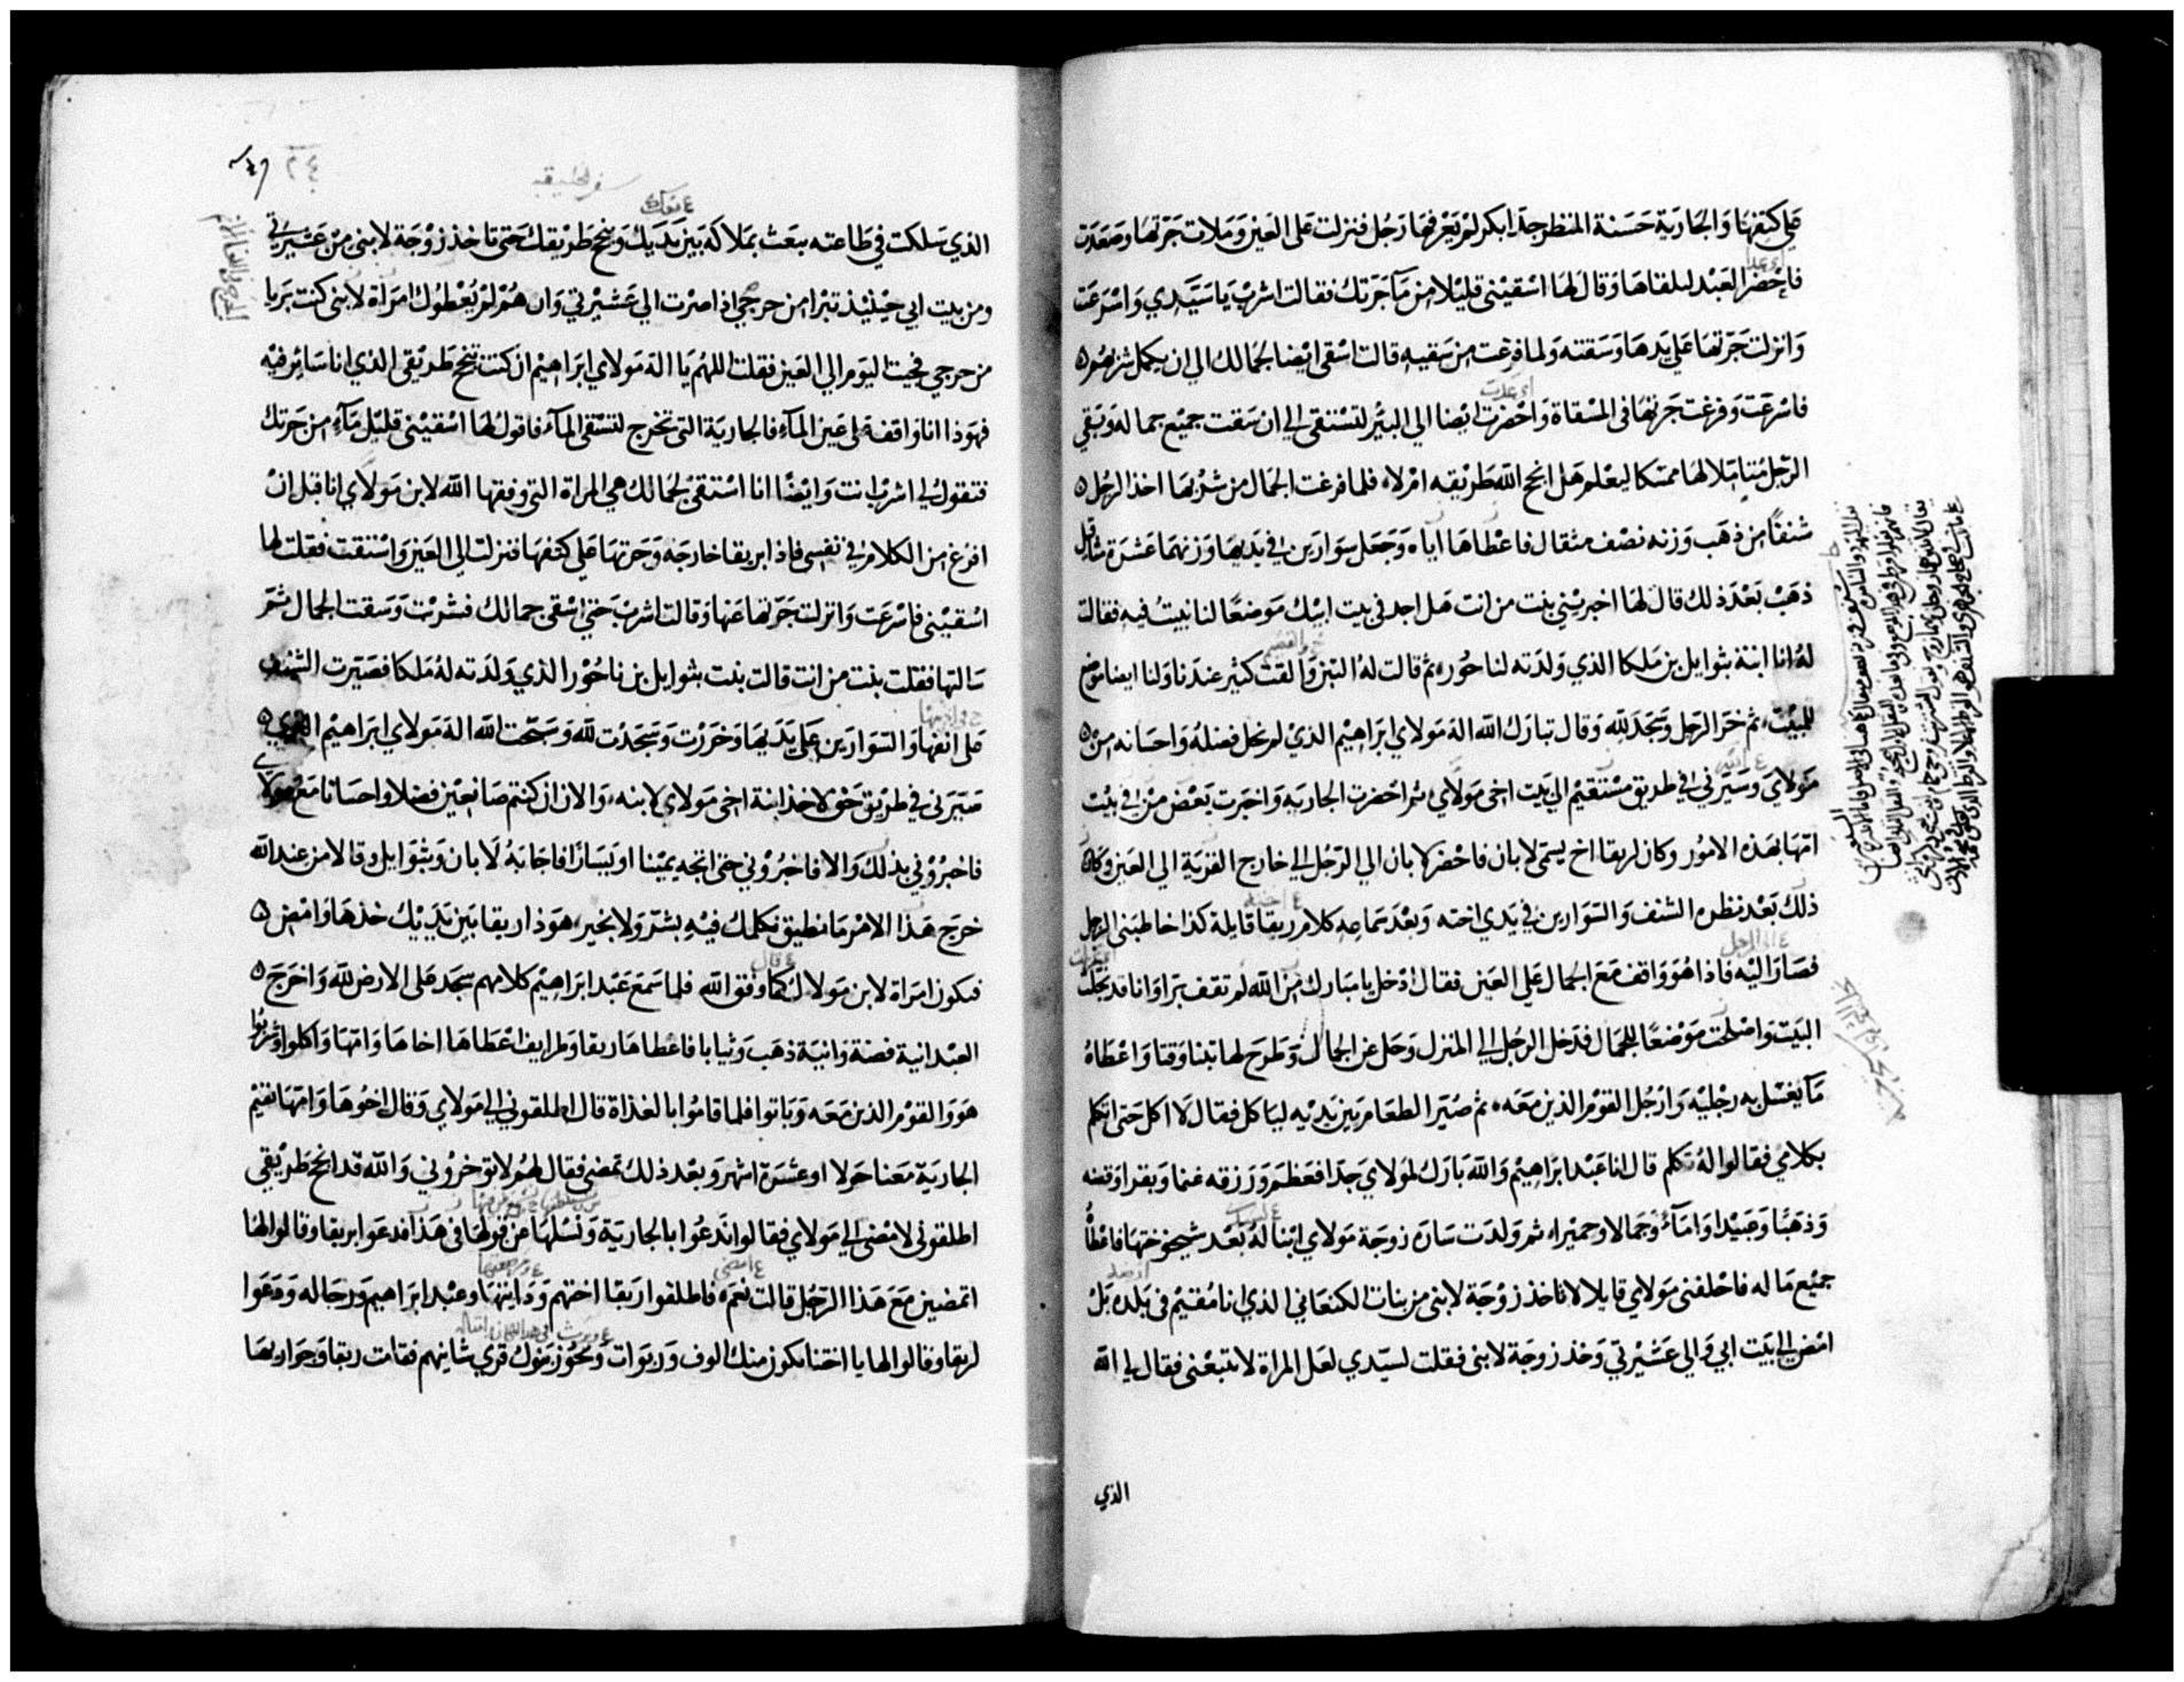 علي كتفها وَالجَاريَة حَسَنة المنظر جدّا بكر لم يَعرفها رَجُل فنزلت عَلى العَين وَملات جَرّتها وصَعَدت
فاحْضر العَبْد لىلقاهَا وَقال لهَا اسْقيْنى قليْلا من مَآ جَرّتك فقالت اشربْ يَا سَيّدي وَاسْرعَت
وَانزلت جَرّتهَا عَلى يَدهَا وَسَقته وَلما فرغت من سَقيه قالت اسْقى ايْضا لجمَالك الي ان يكمل شربهُم
فاسْرعَت وَفرغت جَرتهَا فى المسْقاة وَاحْضرت ايْضا الى البئر لتسْتقى الي ان سَقت جميْع جماله وَبَقي
الرّجل مُتاملا لهَا ممسكا ليعْلم هَل انجح الله طَريْقه امْ لا فلما فرغت الجمَال من شرْبهَا اخذ الرجُل
شنفًا من ذهَب وَزنه نصْف مثقال فاعْطاهَا اياه وَجَعل سِوَارَين في يَديهَا وَزنهمَا عَشرَة مثاقيل
ذهَبْ بَعْدَ ذلك قال لهَا اخبريْني بنت من انت هَل اجد فى بيت ابيْك مَوضعًا لنا نبيتُ فيه فقالت
لهُ انا ابنة بثوايل بن مَلكا الذي وَلدَته لناحُور ثم قالت لهُ التبن وَالقت كثير عندَنا وَلنا ايضا موضع
للمبيْت ثم خرّ الرّجل وَسَجَدَ لله وَقال تبارَك الله اله مَولاي ابرَاهِيْم الذيْ لم يخل فضلهُ وَاحسَانه منْ
مَولايَ وَسَيّرَني في طريق مسْتقيْم الي بَيت اخى مَولاي ثم احَضرت الجاريَه وَاخبرت بَعْض منْ في بيْت
امّهَا بهَذه الامُور وَكان لربقا اخ يسمى لابان فاحْضر لابان الي الرّجُل الي خارج القريَة الى العَين وَكان
ذلكَ بَعْد نظره الشنف وَالسّوَارين في يَدي اخته وَبعْدَ سَمَاعِه كلام ربقا قايلة كذا خاطبَنى الرجل
فصَارَ اليْه فاذا هُوَ وَاقف مَعَ الجمال عَلي العَين فقال ادْخل يا مبَارك من الله لم تقف بَرّا وَانا قد بخلت
البَيْت وَاصْلحت مَوْضعًا للجمَال فدَخل الرجل الي المنزل وَحَل عن الجمال وَطرَح لها تبنا وَقتا وَاعْطاهُ
مَآ يغسْل به رجْليْه وَارْجُل القوْم الذين مَعَه ثم صُيّرَ الطعَام بَين يَديْه ليَاكل فقال لَا اكل حَتى اتكلم
بكلامي فقالوا لهُ تكلم قال انا عَبْد ابرَاهِيْم وَالله بَارَك لمَولاي جدّا فعَظم وَرزقه غنما وَبقرا وَفضه
وَذهَبًا وَعَبيْدا وَامَآء وَجمَالا وَحميْرا ثم وَلدَت سَارَه زوجَة مَولاي ابْنا لهُ بَعْد شيخوختهَا فاعْطاهُ
جميْع مَا له فاحْلفنى مَولاي قايلا لا تاخذ زوْجَة لابنى من بنات الكنعَاني الذي انا مُقيْم فى بَلده بَلْ
امْض الى بَيت ابي وَالى عَشيْرتي وَخذ زوجَة لابنى فقلت لسيّدي لعَل المرَاة لا تتبعْنى فقال لي الله
الذي
سفر الخليقه
٢٤
الذي سَلكت في طَاعته يبعَث بمَلاكه بَين يَدَيك وَينجح طَريْقك حَتى تاخذ زوْجَة لابنى منْ عَشيْرتي
ومن بيت ابي حيْنئذ تبْرا من حرجي اذا صرْت الي عَشيْرتي وَان هُمْ لمْ يُعْطوك امرَاة لابنى كنت بَريا
من حرجي فجيت اليَوم الي العَين فقلت اللهُم يَا اله مَولاي ابرَاهِيْم ان كنت تنجح طَريْقى الذي انا سَائر فيْه
فهوَذا انا وَاقف على عَين المآء فالجاريَة التى تخرج لتسْتقى المآء فاقولُ لهَا اسْقيْنى قليْل مَآءٍ من جَرتك
فتقولُ لي اشربْ انت وَايْضًا انا اسْتقيْ لجمَالك هي المرَاة التى وفقها الله لابن مَولاي انا قبل انْ
افرُغ من الكلام في نفسِى فاذا بربقا خارجَه وَجَرتهَا عَلى كتفهَا فنزلت الي العَين وَاسْتقت فقلت لها
اسْقيْنى فاسْرعَت وَانزلت جَرّتها عَنها وَقالت اشربْ حَتى اسْقى جمالك فشربْت وَسَقت الجمال ثمّ
سَالتها فقلت بنت من انت قالت بنت بثوايل بن ناحُوْر الذي وَلدَته لهُ مَلكا فصَيّرت الشنف
على انفهَا وَالسّوَارَين عَلى يَدَيهَا وَخرَرْت وَسَجدْت لله وَسَبّحْت الله اله مَولاي ابرَاهيْم الذي
سَيّرَنى في طَريْق حَق لاخذ ابنة اخى مَولاي لابنه وَالان ان كنتم صَانعيْن فضلا وَاحسَانا مَعْ مَولاي
فاخبرُوْني بذلك وَالا فاخبرُوْني حَتى اتجه يميْنا او يَسَارًا فاجَابَهُ لابان وَبثوَايل وقالا من عند الله
خرجَ هَذا الامْر مَا نطيق نكلمك فيْهِ بشرّ وَلا بخير هوَذا ربقا بَين يَدَيْك خذهَا وَامْض
فتكون امرَاة لابن مَولاك كمَا وفق الله فلما سَمعَ عَبْد ابرَاهِيْم كلامهم سَجَد عَلى الارض لله وَاخرَجَ
العَبْد انية فضة وَانيَة ذهَب وَثيابا فاعْطاهَا ربقا وَطرايف اعْطاهَا اخاهَا وَامّهَا وَاكلوا وَشربُوا
هوَ وَالقوْم الذين مَعَه وَبَاتوا فلما قامُوا بالغدَاة قال اطلقوني الي مَولاي وَقال اخُوهَا وَامّهَا تقيْم
الجاريَة مَعَنا حَولا او عَشرَة اشهر وَبعْد ذلك تمضى فقال لهُم لا توخرُوْني وَالله قد انجح طَريْقى
اطلقونى لامْضى الي مَولاي فقالوا نَدعُوا بالجاريَة وَنسْلهَا عن قولهَا فى هَذا فدعَوا بربقا وقالوا لهَا
اتمضين مَعَ هَذا الرّجُل قالت نعَم فاطلقوا ربَقا اختهم وَدَايتهَا وَعبْد ابرَاهيم وَرجَاله وَدَعَوا
لربقا وقالوا لها يا اختنا يكون منك الوف وَربوَات وَيحُوز بَنوك قرى شانيهم فقامَت ربقا وَجوَاريْهَا